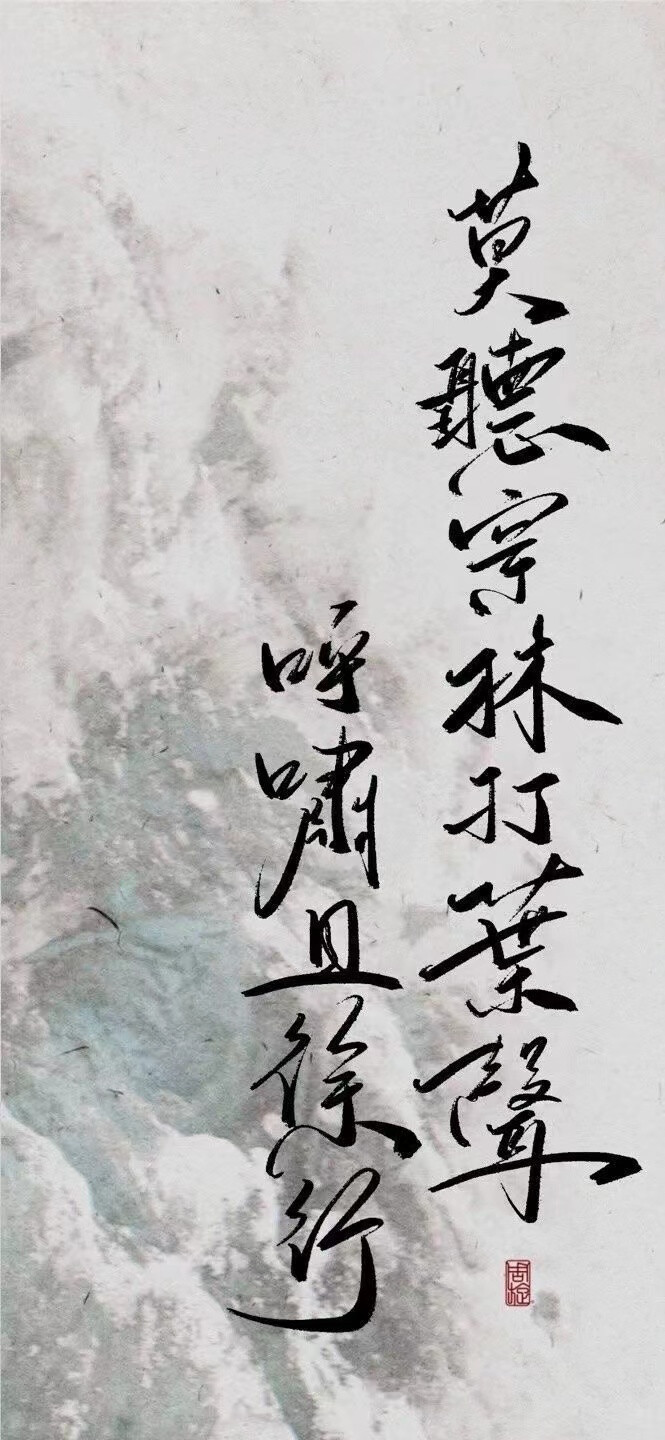 莫聽穿林打葉聲
呼嘯且徐行
周